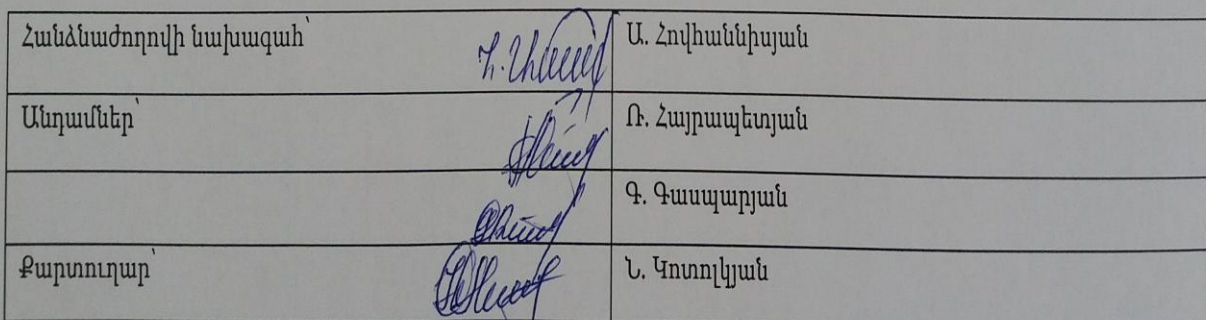 Հանձնաժողովի նախագահ՝ Ա. Հովհաննիսյան
Անդամներ՝ Ռ. Հայրապետյան
Գ. Գասպարյան
Քարտուղար՝ Ն. Կոտոլկյան